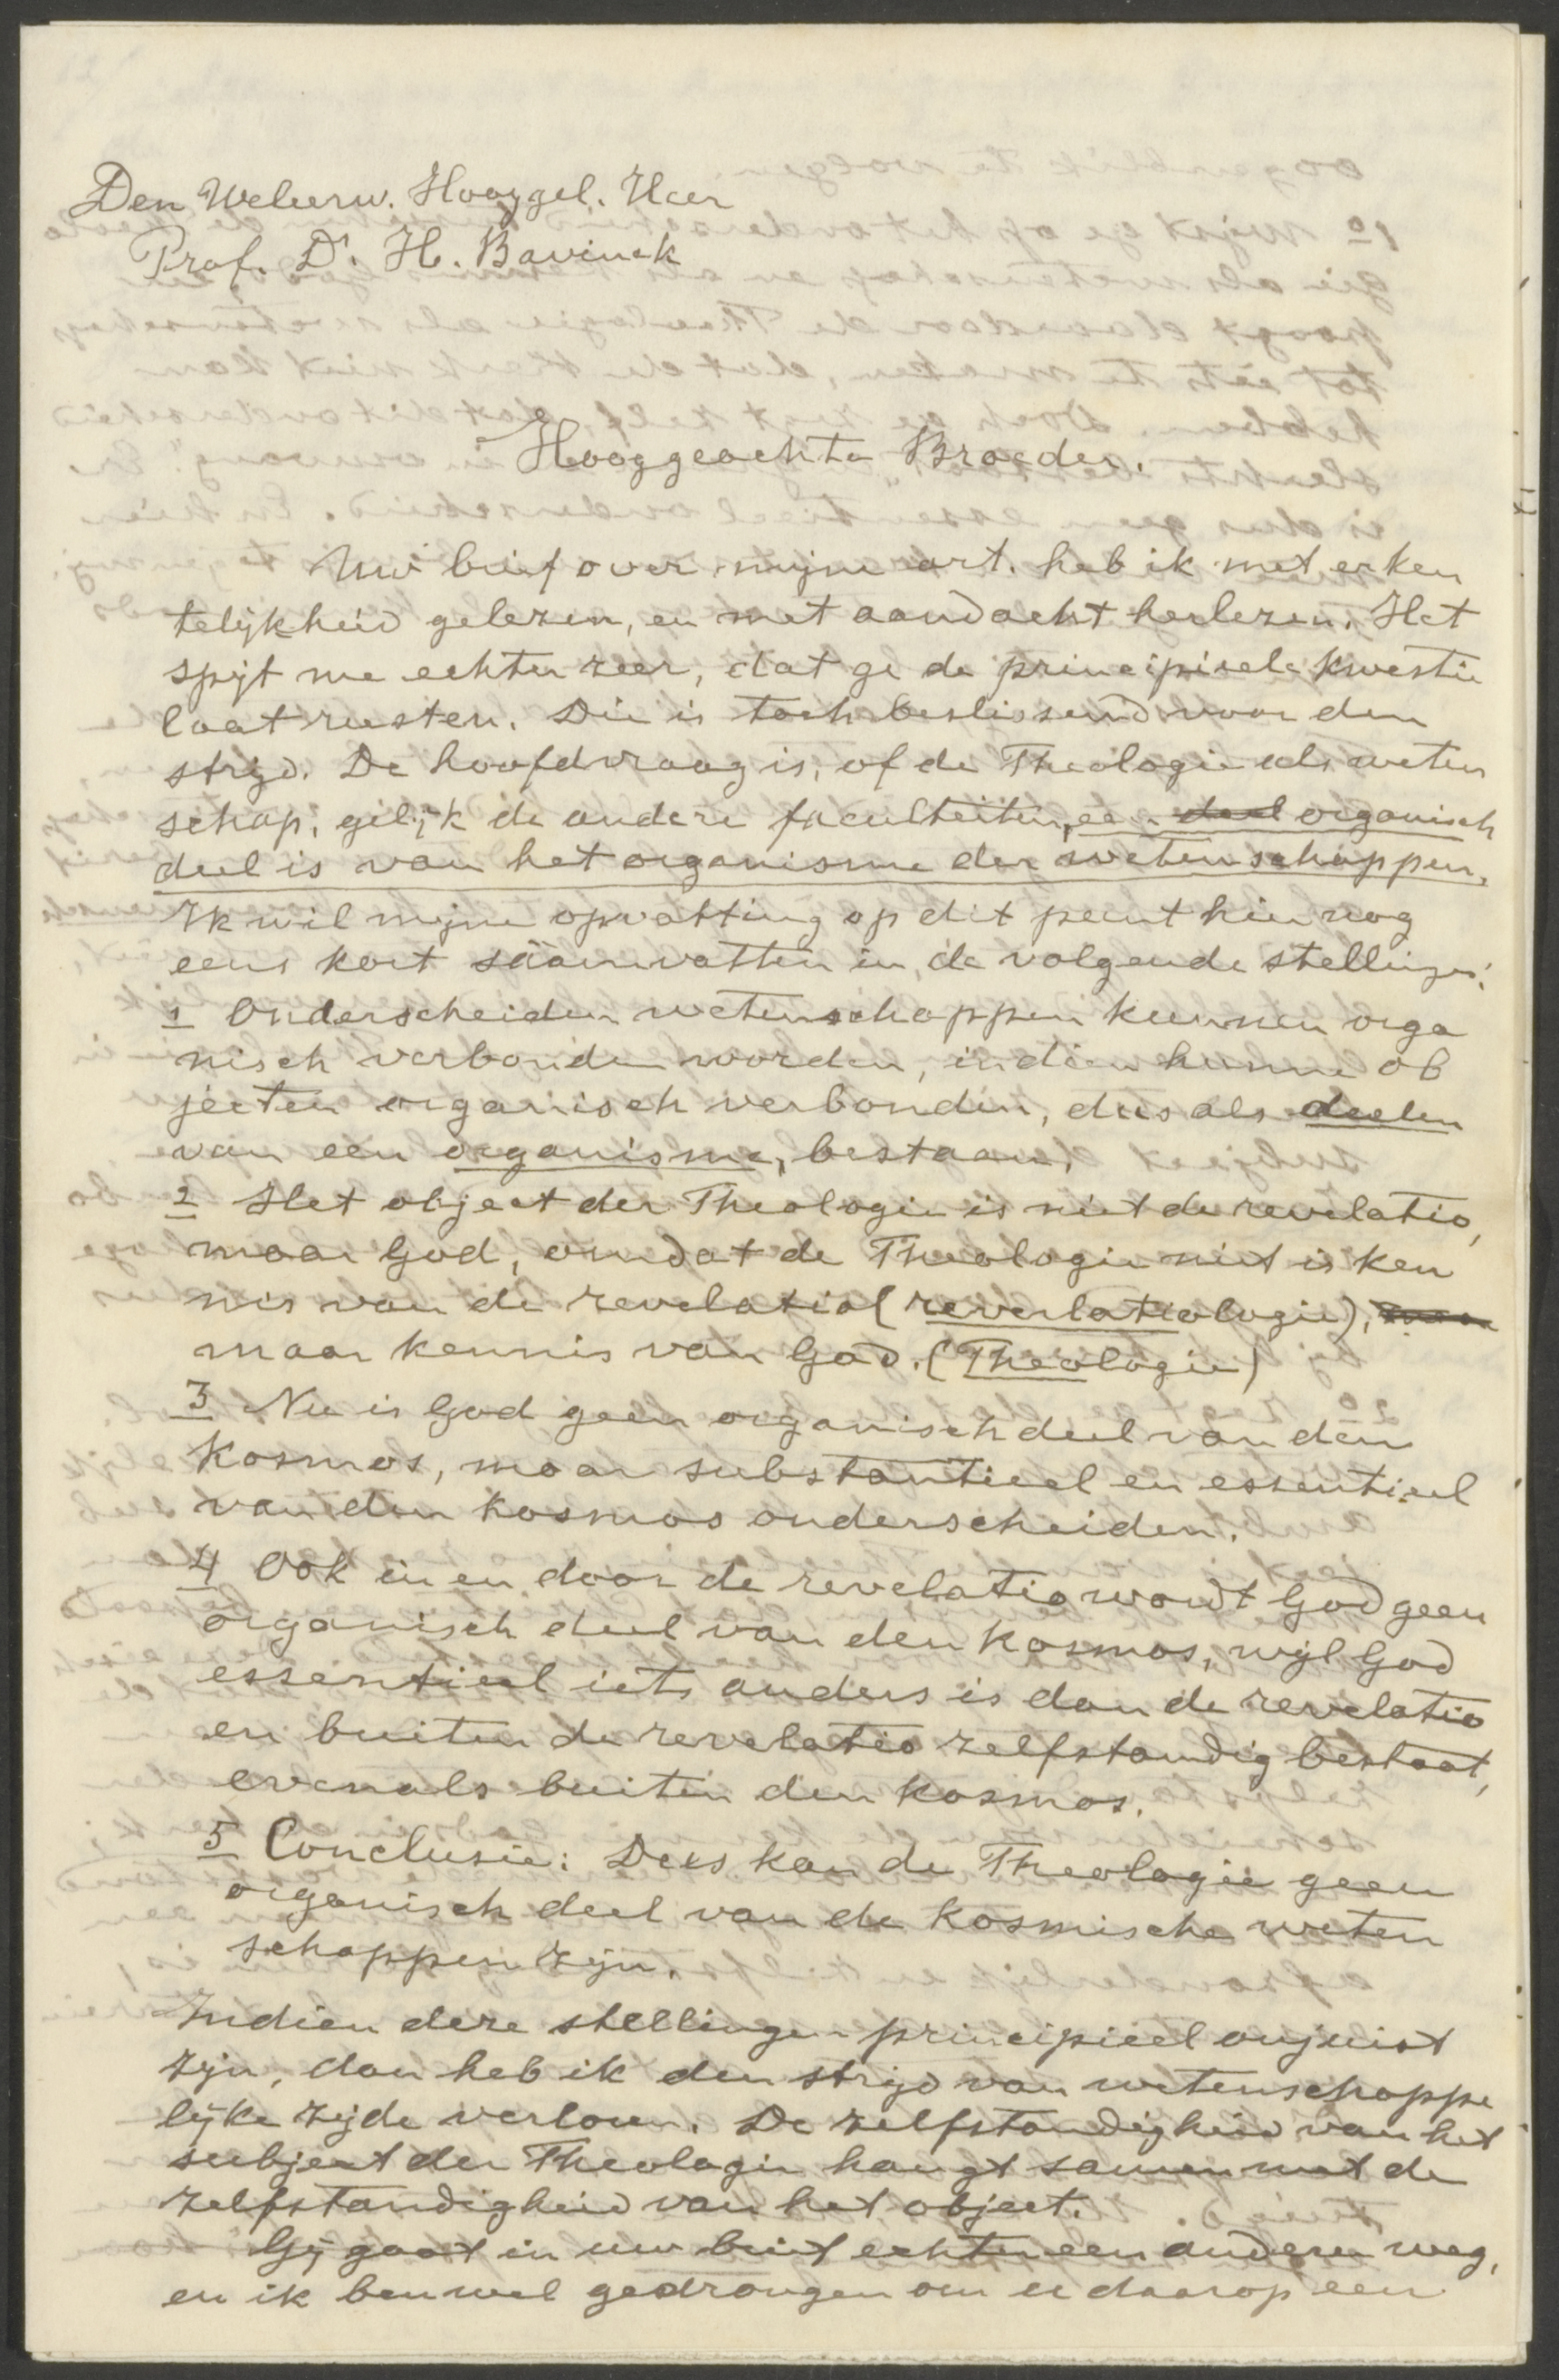 Den Weleerw. Hooggel. Heer
Prof. Dr. H. Bavinck
Hooggeachte Broeder.
Uw brief over mijne art. heb ik met erken
telijkheid gelezen, en met aandacht herlezen. Het
spijt me echter zeer, dat ge de principieele kwestie
laat rusten. Die is toch beslissend voor den
strijd. De hoofdvraag is, of de Theologie als weten
schap, gelijk de andere faculteiten, een deel organisch
deel is van het organisme der wetenschappen.
Ik wil mijne opvatting op dit punt hier nog
eens kort säamvatten in de volgende stellingen:
1 Onderscheiden wetenschappen kunnen orga
nisch verbonden worden, indien hunne ob
jecten organisch verbonden, dus als deelen
van een organisme, bestaan.
2 Het object der Theologie is niet de revelatio,
maar God, omdat de Theologie niet is ken
nis van de revelatio (revelatiologie),
maar kennis van God. (Theologie)
3 Nu is God geen organisch deel van den
kosmos, maar substantieel en essentieel
van den kosmos onderscheiden.
4 Ook in en door de revelatio wordt God geen
organisch deel van den kosmos, wijl God
essentieel iets anders is dan de revelatio
en buiten de revelatio zelfstandig bestaat,
evenals buiten den kosmos.
5 Conclusie: Dus kan de Theologie geen
organisch deel van de kosmische weten
schappen zijn.
Indien deze stellingen principieel onjuist
zijn, dan heb ik den strijd van wetenschappe
lijke zijde verloren. De zelfstandigheid van het
subject der Theologie hangt samen met de
zelfstandigheid van het object.
Gij gaat in uw brief echter een anderen weg,
en ik ben wel gedrongen om u daarop een